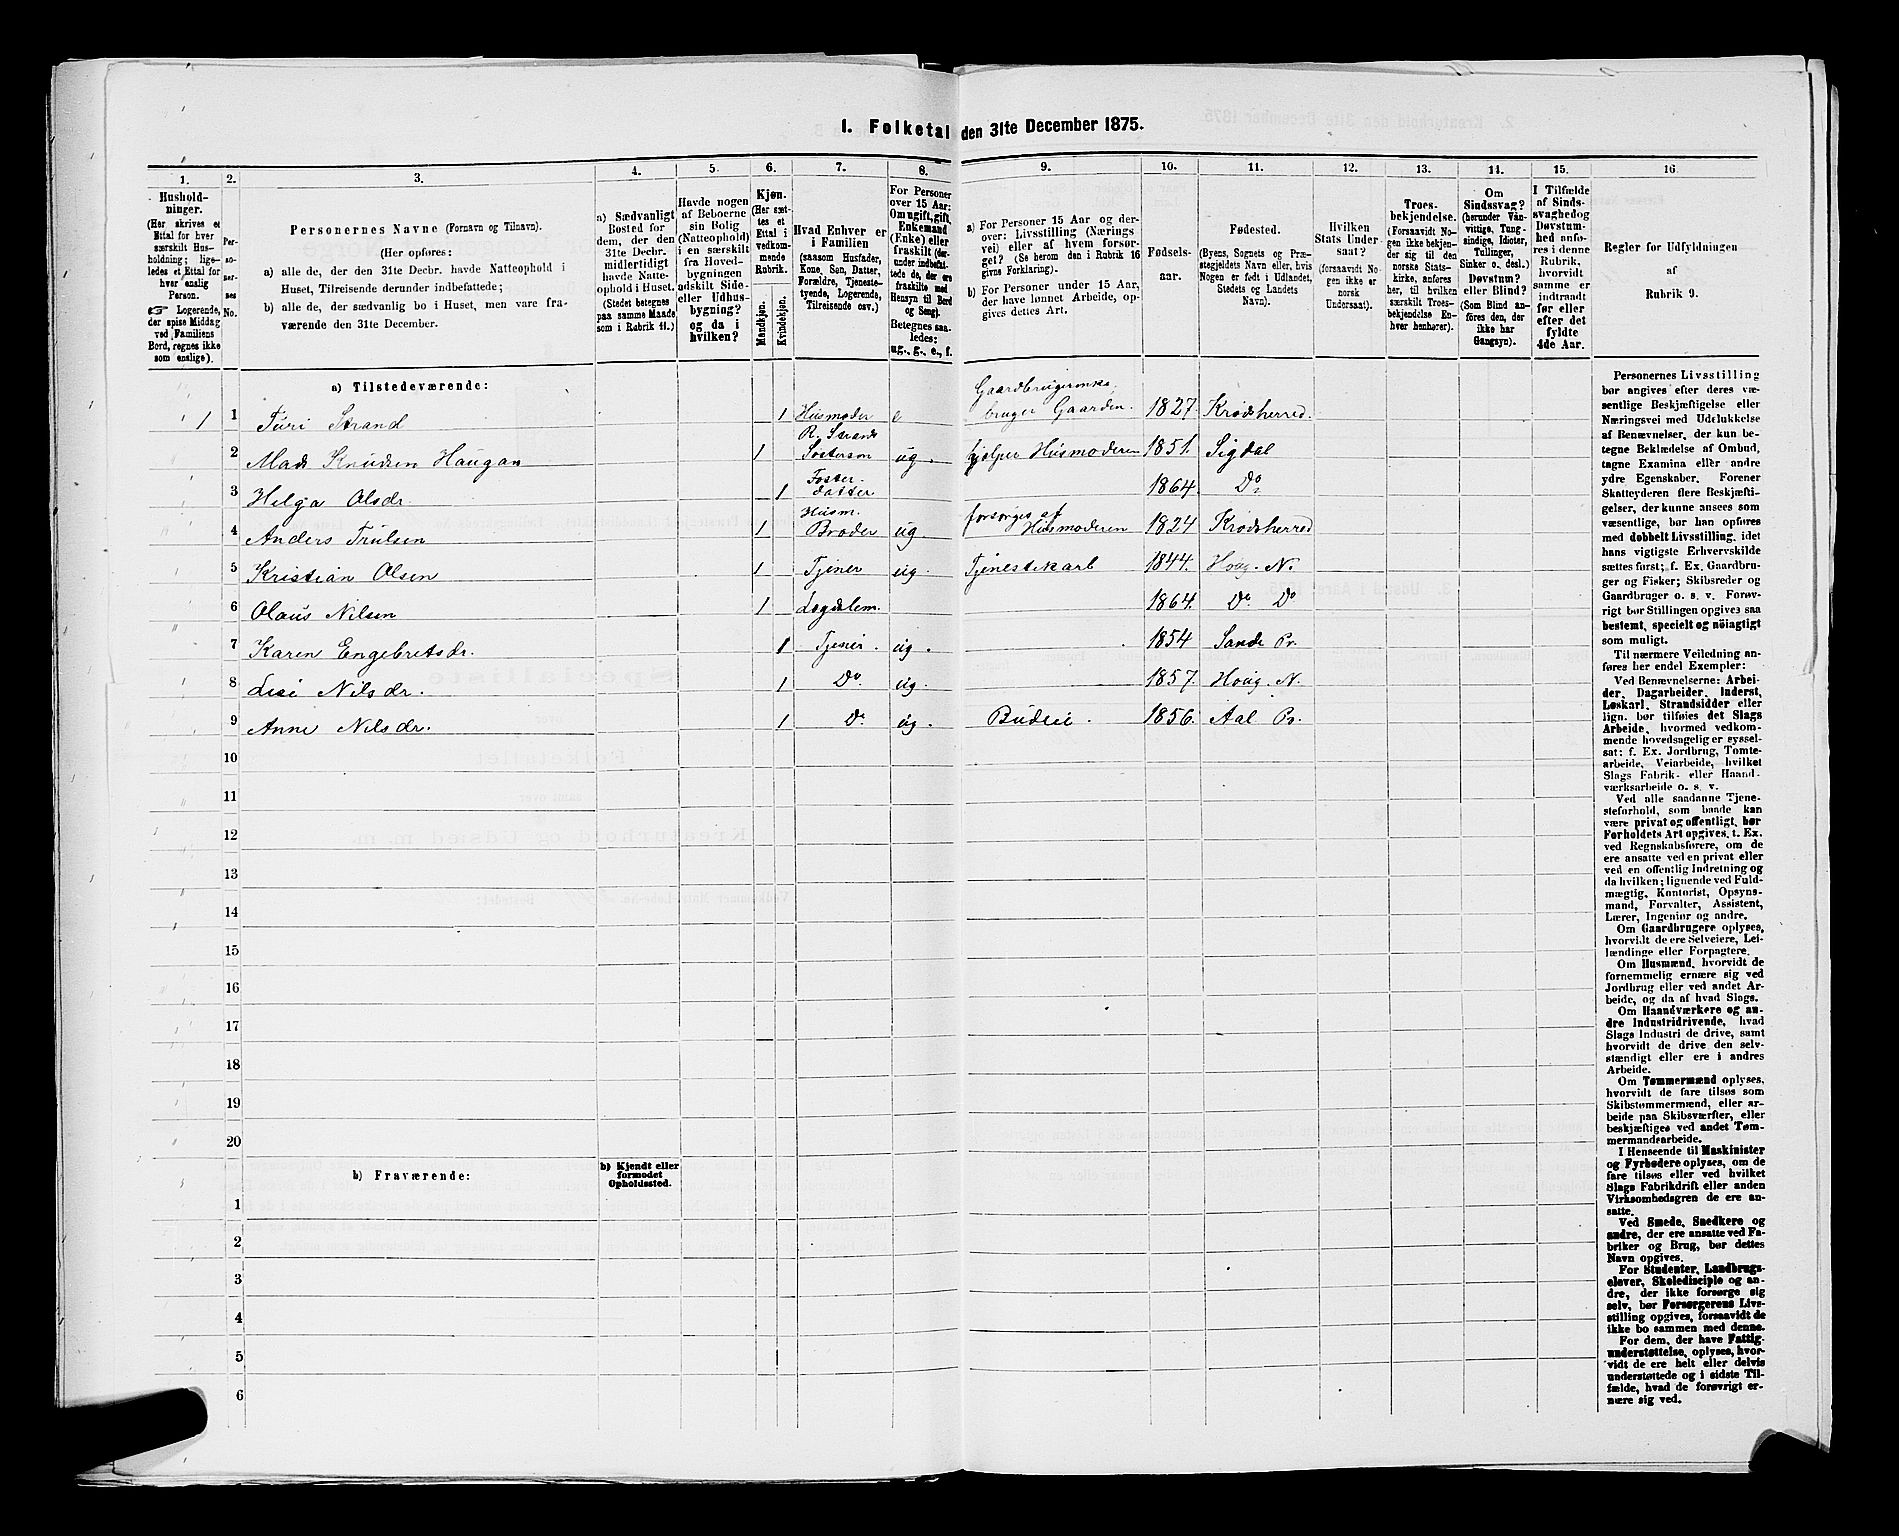 1. Folketal den 31te December 1875.
1.
Hushold-
ninger.
(Her skrives et
Ettal for hver
særskilt Hus-
holdning; lige-
ledes et Ettal for
hver enslig
Person.
☞ Logerende,
der spise Middag
ved Familiens
Bord, regnes ikke
som enslige).
2.
Per-
so-
ner-
nes
No.
3.
Personernes Navne (Fornavn og Tilnavn).
(Her opføres:
a) alle de, der den 31te Decbr. havde Natteophold i
Huset, Tilreisende derunder indbefattede;
b) alle de, der sædvanlig bo i Huset, men vare fra-
værende den 31te December.
4.
a) Sædvanligt
Bosted for
dem, der den
31te Decbr.
midlertidigt
havde Natte-
ophold i Huset.
(Stedet betegnes
paa samme Maade
som i Rubrik 11.)
5.
Havde nogen
af Beboerne
sin Bolig
(Natteophold)
i en særskilt
fra Hoved-
bygningen
adskilt Side-
eller Udhus-
bygning?
og da i
hvilken?
6.
Kjøn.
(Her sæt-
tes et
Ettal i
vedkom-
mende
Rubrik.
Mandkjøn.
Kvindekjøn.
7.
Hvad Enhver er
i Familien
(saasom Husfader,
Kone, Søn, Datter,
Forældre, Tjeneste-
tyende, Logerende,
Tilreisende osv.)
8.
For Personer
over 15 Aar:
Om ugift, gift,
Enkemand
(Enke) eller
fraskilt (der-
under indbefat-
tede de, der ere
fraskilte med
Hensyn til Bord
og Seng).
Betegnes saa-
ledes:
ug., g., e., f.
9.
a) For Personer 15 Aar og der-
over: Livsstilling (Nærings
vei) eller af hvem forsør-
get? (Se herom den i Rubrik 16
givne Forklaring).
b) For Personer under 15 Aar,
der have lønnet Arbeide, op-
gives dettes Art.
10.
Fødsels-
aar.
11.
Fødested.
(Byens, Sognets og Præ-
stegjeldets Navn eller, hvis
Nogen er født i Udlandet,
Stedets og Landets
Navn).
12.
Hvilken
Stats Under-
saat?
(forsaavidt No-
gen ikke er
norsk
Undersaat).
13.
Troes-
bekjendelse.
(Forsaavidt No-
gen ikke bekjen-
der sig til den
norske Stats-
kirke, anføres
her, til hvilken
særskilt Troes-
bekjendelse En-
hver henhører).
14.
Om
Sindssvag?
(herunder Van-
vittige, Tung-
sindige, Idioter,
Tullinger,
Sinker o. desl.)
Døvstum?
eller Blind?
(Som Blind an-
føres den, der
ikke har
Gangsyn).
15.
I Tilfælde
af Sinds-
svaghed og
Døvstum-
hed anfø-
res i denne
Rubrik,
hvorvidt
samme er
indtraadt
før eller
efter det
fyldte
4de Aar.
16
Regler for Udfyldningen
af
Rubrik 9.
a) Tilstedeværende:
1 1 Turi Strand 1 Husmoder e Gaardbrugerenke. bruger Gaarden. 1827. Krødsherred.
2 Mads Knudsen Haugan 1 R. Strands Søsterson ug. hjelper Husmoderen 1851. Sigdal
3 Helga Olsdr. 1 Foster- datter 1864. Do
4 Anders Trulsen 1 Husm. Broder ug. forsørges af Husmoderen 1824 Krødsherred
5 Kristian Olsen 1 Tjener ug. Tjenestekarl 1844. Houg. N.
6 Olaus Nilsen 1 Lægdslem. 1864. Do. Do
7 Karen Engebretsdr. 1 Tjener. ug. 1854 Sande Pr.
8 Lisi Nilsdr. 1 Do. ug. 1857. Houg. N.
9 Anne Nilsdr. 1 Do. ug. Budeie. 1856. Aal Pr.
10
11
12
13
14
15
16
17
18
19
20
b) Fraværende:
b) Kjendt eller
formodet
Opholdssted.
1
2
3
4
5
6
Personernes Livsstilling
bør angives efter deres væ-
sentlige Beskjæftigelse eller
Næringsvei med Udelukkelse
af Benævnelser, der kun be-
tegne Beklædelse af Ombud,
tagne Examina eller andre
ydre Egenskaber. Forener
Skatteyderen flere Beskjæfti-
gelser, der kunne ansees som
væsentlige, bør han opføres
med dobbelt Livsstilling, idet
hans vigtigste Erhvervskilde
sættes først; f. Ex. Gaardbru-
ger og Fisker; Skibsreder og
Gaardbruger o. s. v. Forøv-
rigt bør Stillingen opgives saa
bestemt, specielt og nöiagtigt
som muligt.
Til nærmere Veiledning an-
føres her endel Exempler:
Ved Benævnelserne: Arbei-
der, Dagarbeider, Inderst,
Løskarl, Strandsidder eller
lign. bør tilføies det Slags
Arbeide, hvormed vedkom-
mende hovedsagelig er syssel-
sat: f. Ex. Jordbrug, Tomte-
arbeide, Veiarbeide, hvilket
Slags Fabrik- eller Haand-
værksarbeide o. s. v.
Ved alle saadanne Tjene-
steforhold, som baade kan
være privat og offentligt, bør
Forholdets Art opgives, t. Ex.
ved Regnskabsførere, om de
ere ansatte ved en privat eller
ved en offentlig Indretning og
da hvilken; lignende ved Fuld-
mægtig, Kontorist, Opsyns-
mand, Forvalter, Assistent,
Lærer, Ingeniør og andre.
Om Gaardbrugere oplyses,
hvorvidt de ere Selveiere, Lei-
lændinge eller Forpagtere.
Om Husmænd, hvorvidt de
fornemmelig ernære sig ved
Jordbrug eller ved andet Ar-
beide, og da af hvad Slags.
Om Haandværkere og an-
dre Industridrivende, hvad
Slags Industri de drive, samt
hvorvidt de drive den selv-
stændigt eller ere i andres
Arbeide.
Om Tømmermænd oplyses,
hvorvidt de fare tilsøs som
Skibstømmermænd, eller ar-
beide paa Skibsværfter, eller
beskjæftiges ved andet Tøm-
mermandarbeide.
I Henseende til Maskinister
og Fyrbødere oplyses, om de
fare tilsøs eller ved hvilket
Slags Fabrikdrift eller anden
Virksomhedsgren de ere an-
satte.
Ved Smede, Snedkere og
andre, der ere ansatte ved Fa-
briker og Brug, bør dettes
Navn opgives.
For Studenter, Landbrugs-
elever, Skoledisciple og an-
dre, der ikke forsørge sig
selv, bør Forsørgerens Livs-
stilling opgives, forsaavidt de
ikke bo sammen med denne.
For dem, der have Fattig-
understøttelse, oplyses, hvor-
vidt de ere helt eller delvis
understøttede og i sidste Til-
fælde, hvad de forøvrigt er-
nære sig ved.